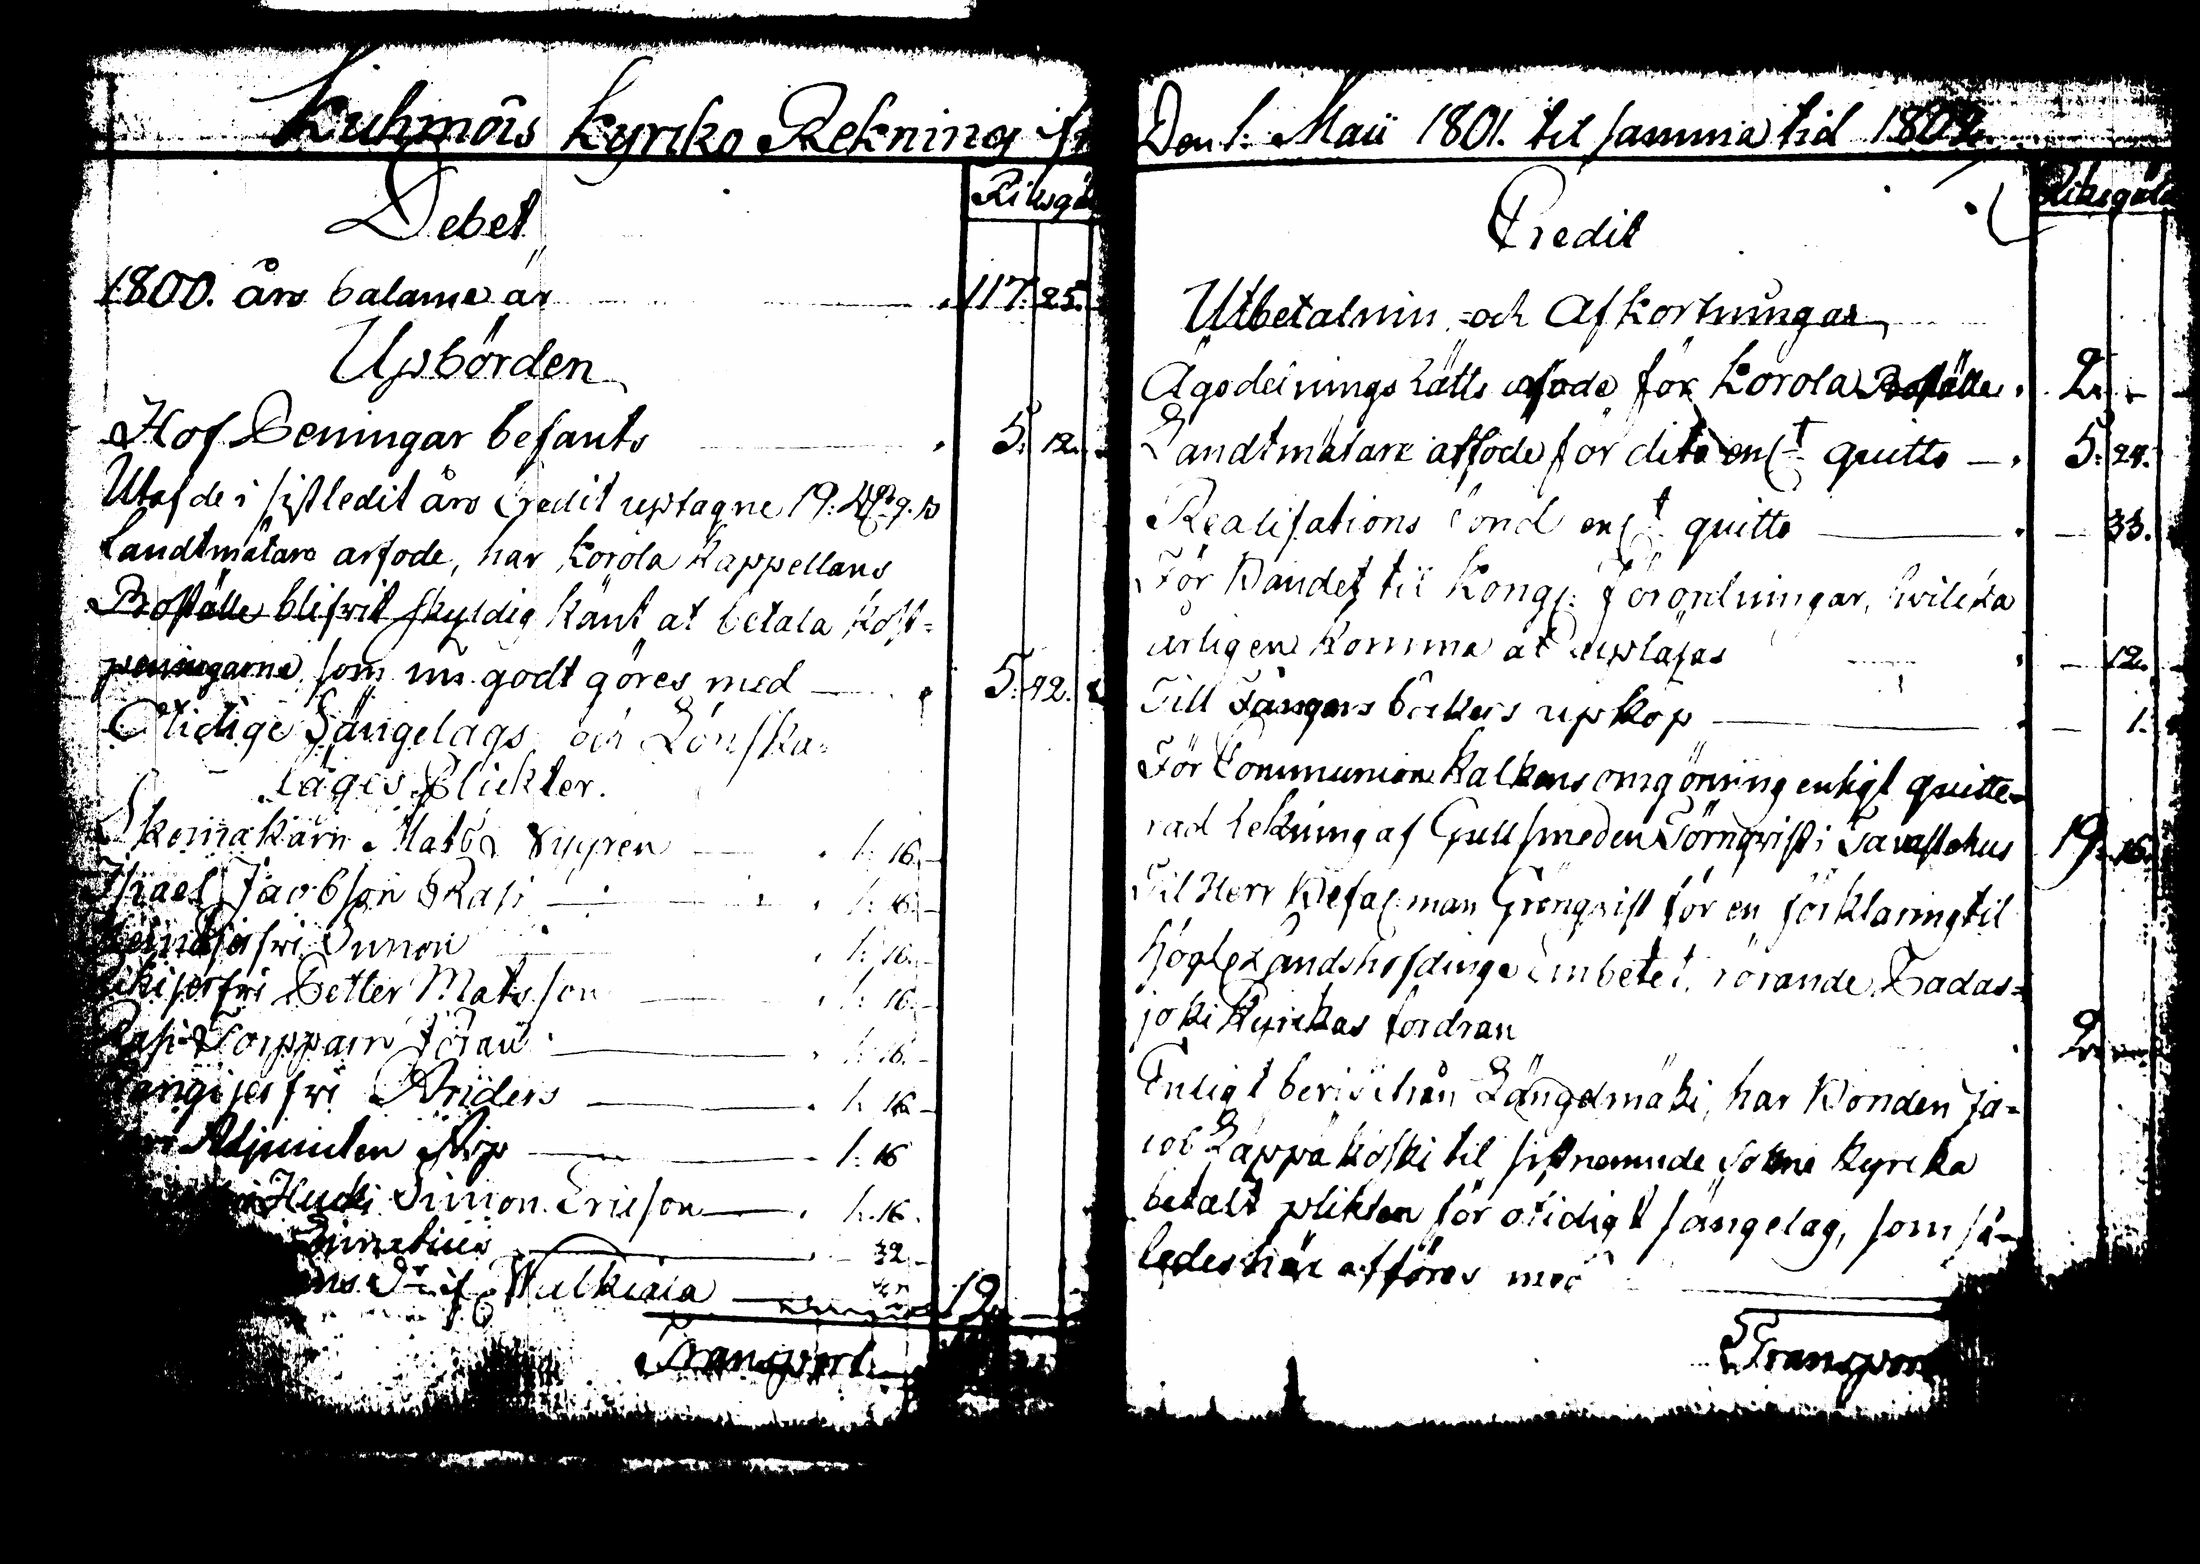 Kuhmois Kyrko Rekning
Riksgä
Debet
1800. års balance är 117. 25.
Upbörden
Hof Peningar befants 5. 12.
Utaf de i sistledit års Credit uptagne 19. Rd 9. s
Landtmätare arfode, har Korola Kappellans
Boställe blifvit skyldig känt at betala kost=
peningarne, som nu godt göres med 5. 42.
Otidige Sängelags och Lönska=
läges Plickter.
Skomakarn Mats 1. 16.
Israel Jacobson Rasi 1. 16.
Simon 1. 16.
Petter Matsson 1. 16.
Rasi Torppam Johan 1. 16.
Anders 1. 16
Adjuncten 1. 16
Hucki Simon Ericson 1. 16.
32
Wulkiala 19
Transport
Den 1. Maii 1801. til samma tid 1802.
Riksgäld
Credit
Utbetalnin= och Afkortningar
Ägodelnings Rätts arfode för Korola Boställe 2.
Landtmätare arfode för dito enl:t quitto 5. 24.
Realisations Fond enl:t quitto 33.
För Bandet til Kongl: Förordningar, hvilcka
årligen komma at upläsas 12.
Till Fångars böckers upköp 1.
För Communion Kalkens omgörning enligt quitte=
rad Rekning af Gullsmeden Törnqvist i Tavastehus 19. 16.
Til Herr Befal:man Grönqvist för en förklaring til
Högl: Landshöfdinge Embetet, rörande Padas=
joki Kyrckas fordran 2.
Enligt bevis ifrån Längelmäki, har Bonden Ja=
cob Lappakoski til sistnemnde Sokne Kyrcka
betalt plikten för otidigt sängelag, som så=
ledes här afföres med
Transport